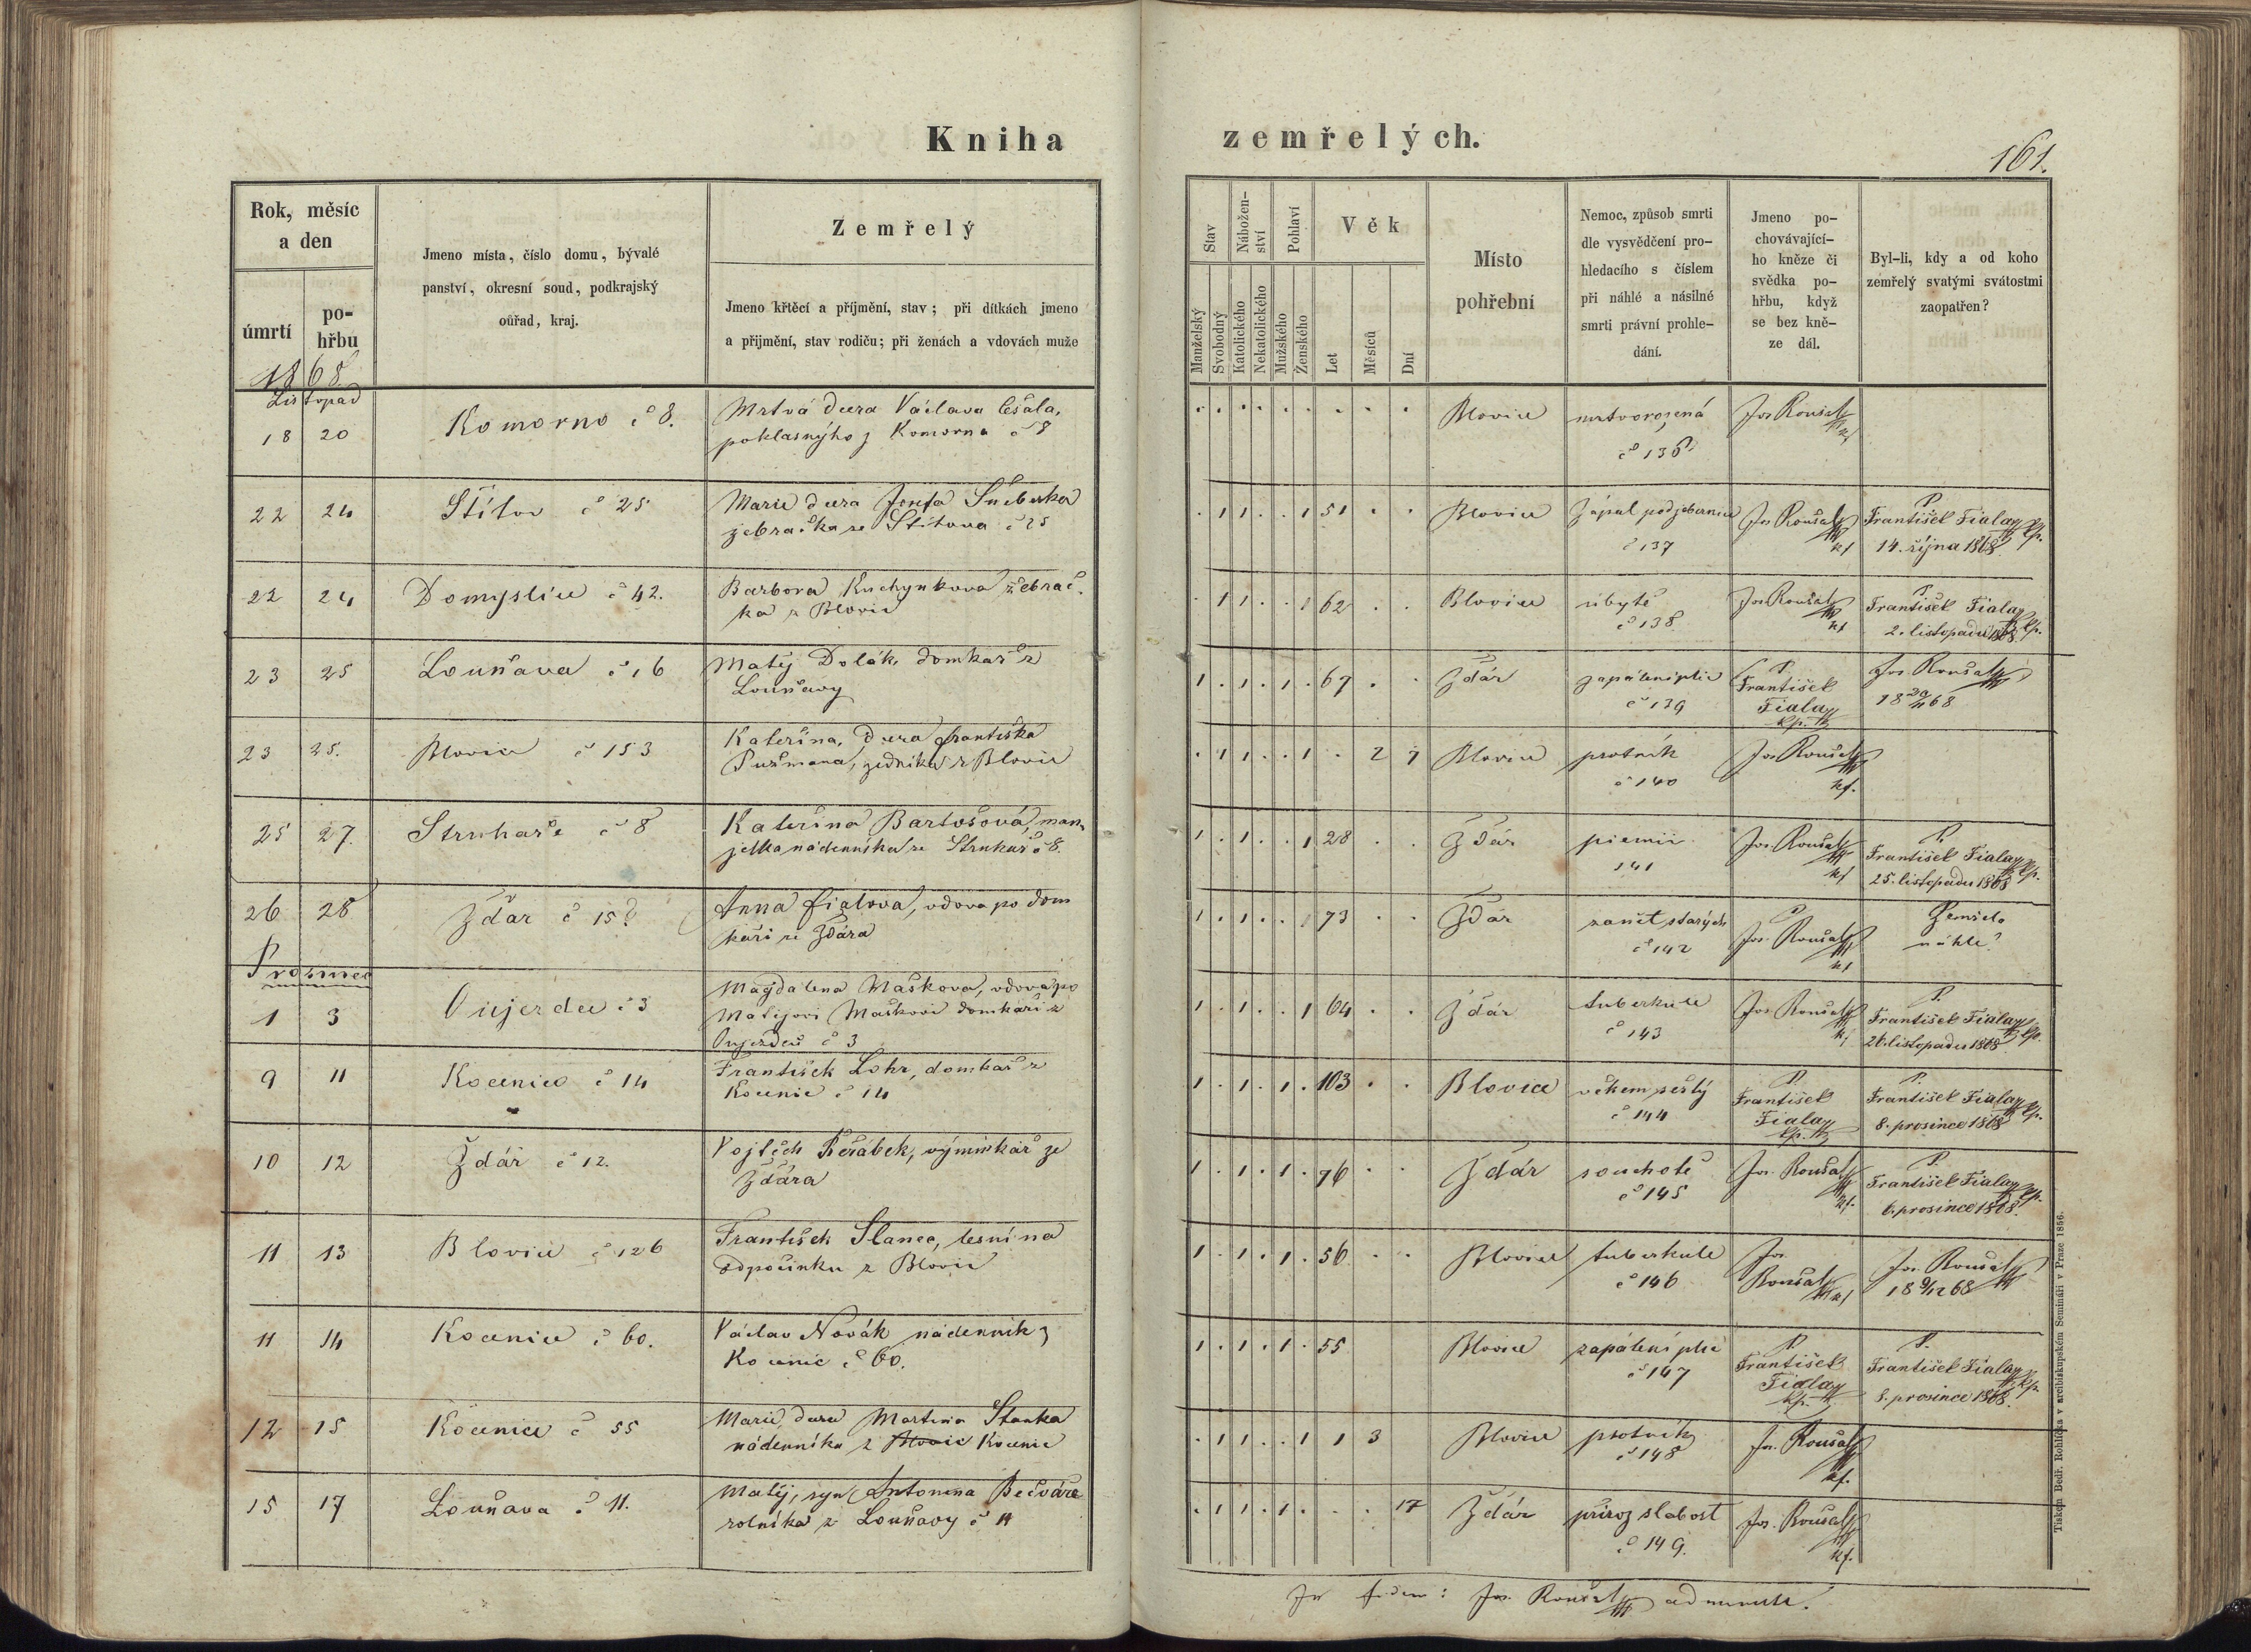 Kniha
zemřelých.
161.
Rok, měsíc
a den
úmrtí
po-
hřbu
Jmeno místa, číslo domu, bývalé
panství, okresní soud, podkrajský
ouřad, kraj.
Zemřelý
Jmeno křtěcí a příjmění, stav; při dítkách jmeno
a přijmění, stav rodičů; při ženách a vdovách muže
Stav
Nábožen-
ství
Pohlaví
Věk
Manželský
Svobodný
Katolického
Nekatolického
Mužského
Ženského
Let
Měsíců
Dní
Místo
pohřební
Nemoc, způsob smrti
dle vysvědčení pro-
hledacího s číslem
při náhlé a násilné
smrti právní prohle-
dání.
Jmeno po-
chovávající-
ho kněze či
svědka po-
hřbu, když
se bez kně-
ze dál.
Byl-li, kdy a od koho
zemřelý svatými svátostmi
zaopatřen?
1868
Listopad
18 20 Komorno č 8.
Mrtvá dcera Václava
z Komorna č 8
Blovice
mrtvorozená
č 136
Jos Roušal
22 24 Štítov č 25
Marie dcera Josefa
žebračka ze Štítova č 25
1 1 1 51
Blovice
Zápal
č 137
Jos Roušal
P.
František Fiala kp.
14. října 1868
22 24 Domyslice č 42.
Barbora Kuchynkova žebrač-
ka z Blovic
1 1 1 62
Blovice
úbytě
č 138
Jos Roušal
P.
František Fiala kp.
2. listopadu 1868
23 25 Louňava č 16
Matěj Dolák domkař z
Louňavy
1 1 1 67
Ždár
zapálení plic
č 139
P.
František
Fiala
kp.
Jos Roušal
18 20/11 68
23 25. Blovice č 153
Kateřina, dcera Františka
zedníka z Blovic
1 1 1 2 7
Blovice
psotník
č 140
Jos Roušal
kf.
25 27. Struhaře č 8
Kateřina Bartošová, man-
želka nádenníka ze Struhař č 8.
1 1 1 28
Ždár
piemii
141
Jos. Roušal
P.
František Fiala kp.
25. listopadu 1868
26 28 Ždár č 15
Anna Fialova, vdova po dom
kaři ze Ždára
1 1 1 73
Ždár
zanět starých
č 142
P.
Jos. Roušal
Zemřela
náhle
Prosinec
1 3 Oujezdec č 3
Magdalena Maškova, vdova po
Matějovi Maškovi domkaři z
Oujezdců č 3
1 1 1 64
Ždár
tuberkule
č 143
Jos Roušal
P.
František Fiala kp.
26. listopadu 1868
9 11 Kocenice č 14
František Lohr, domkař z
Kocenic č 14
1 1 1 103
Blovice
věkem sešlý
č 144
P.
František
Fiala
kp.
P.
František Fiala kp.
8. prosince 1868
10 12 Ždár č 12.
Vojtěch Řeřábek, výminkář ze
Ždára
1 1 1 76
Ždár
souchotě
č 145
Jos. Roušal
kf.
P.
František Fiala kp.
6. prosince 1868.
11 13 Blovice č 126
František Slanec, lesní na
odpočinku z Blovic
1 1 1 56
Blovice
tuberkule
č 146
Jos.
Roušal
Jos. Roušal
18 9/12 68
11 14 Kocenice č 60.
Václav Novák nádenník z
Kocenic č 60.
1 1 1 55
Blovice
zapálení plic
č 147
P.
František
Fiala
kp.
P.
František Fiala kp.
8. prosince 1868.
12 15 Kocenice č 55
Marie dcera Martina Stanka
nádenníka z Blovic Kocenic
1 1 1 1 3
Blovice
psotník
č 148
Jos. Roušal
kf.
15 17 Louňava č 11.
Matěj, syn Antonína Bečváře
rolníka z Louňavy č 11
1 1 1 17
Ždár
přiroz slabost
č 149.
Jos. Roušal
kf.
Tiskem Bedř. Rohlíčka v arcibiskupském Semináři v Praze 1856.
In fidem: Jos. Roušal